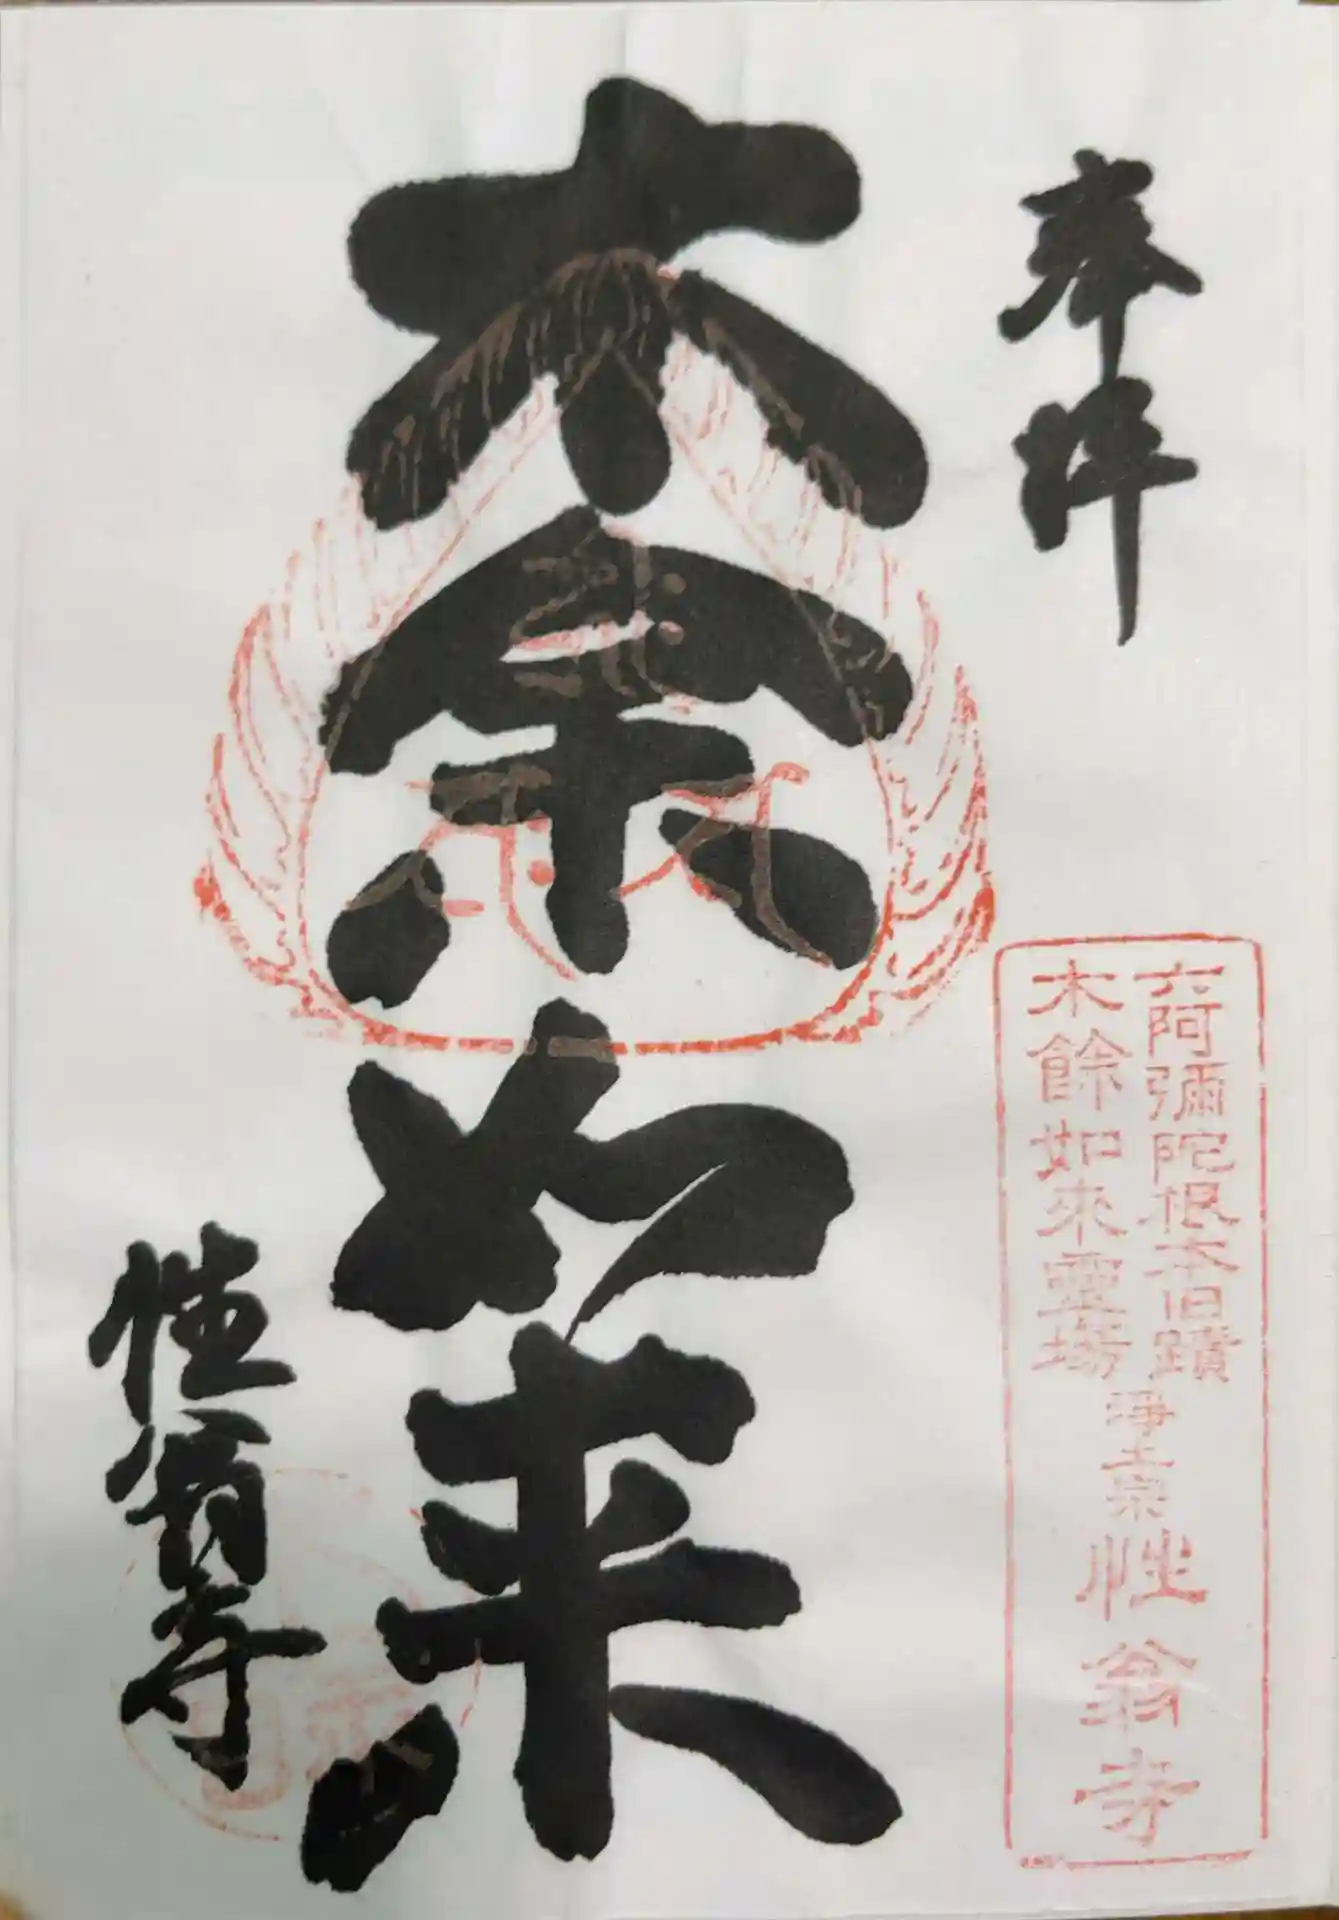 奉拝
六阿彌陀根本旧蹟
木餘如來霊場
浄土宗
性翁寺
木余如来
性翁寺